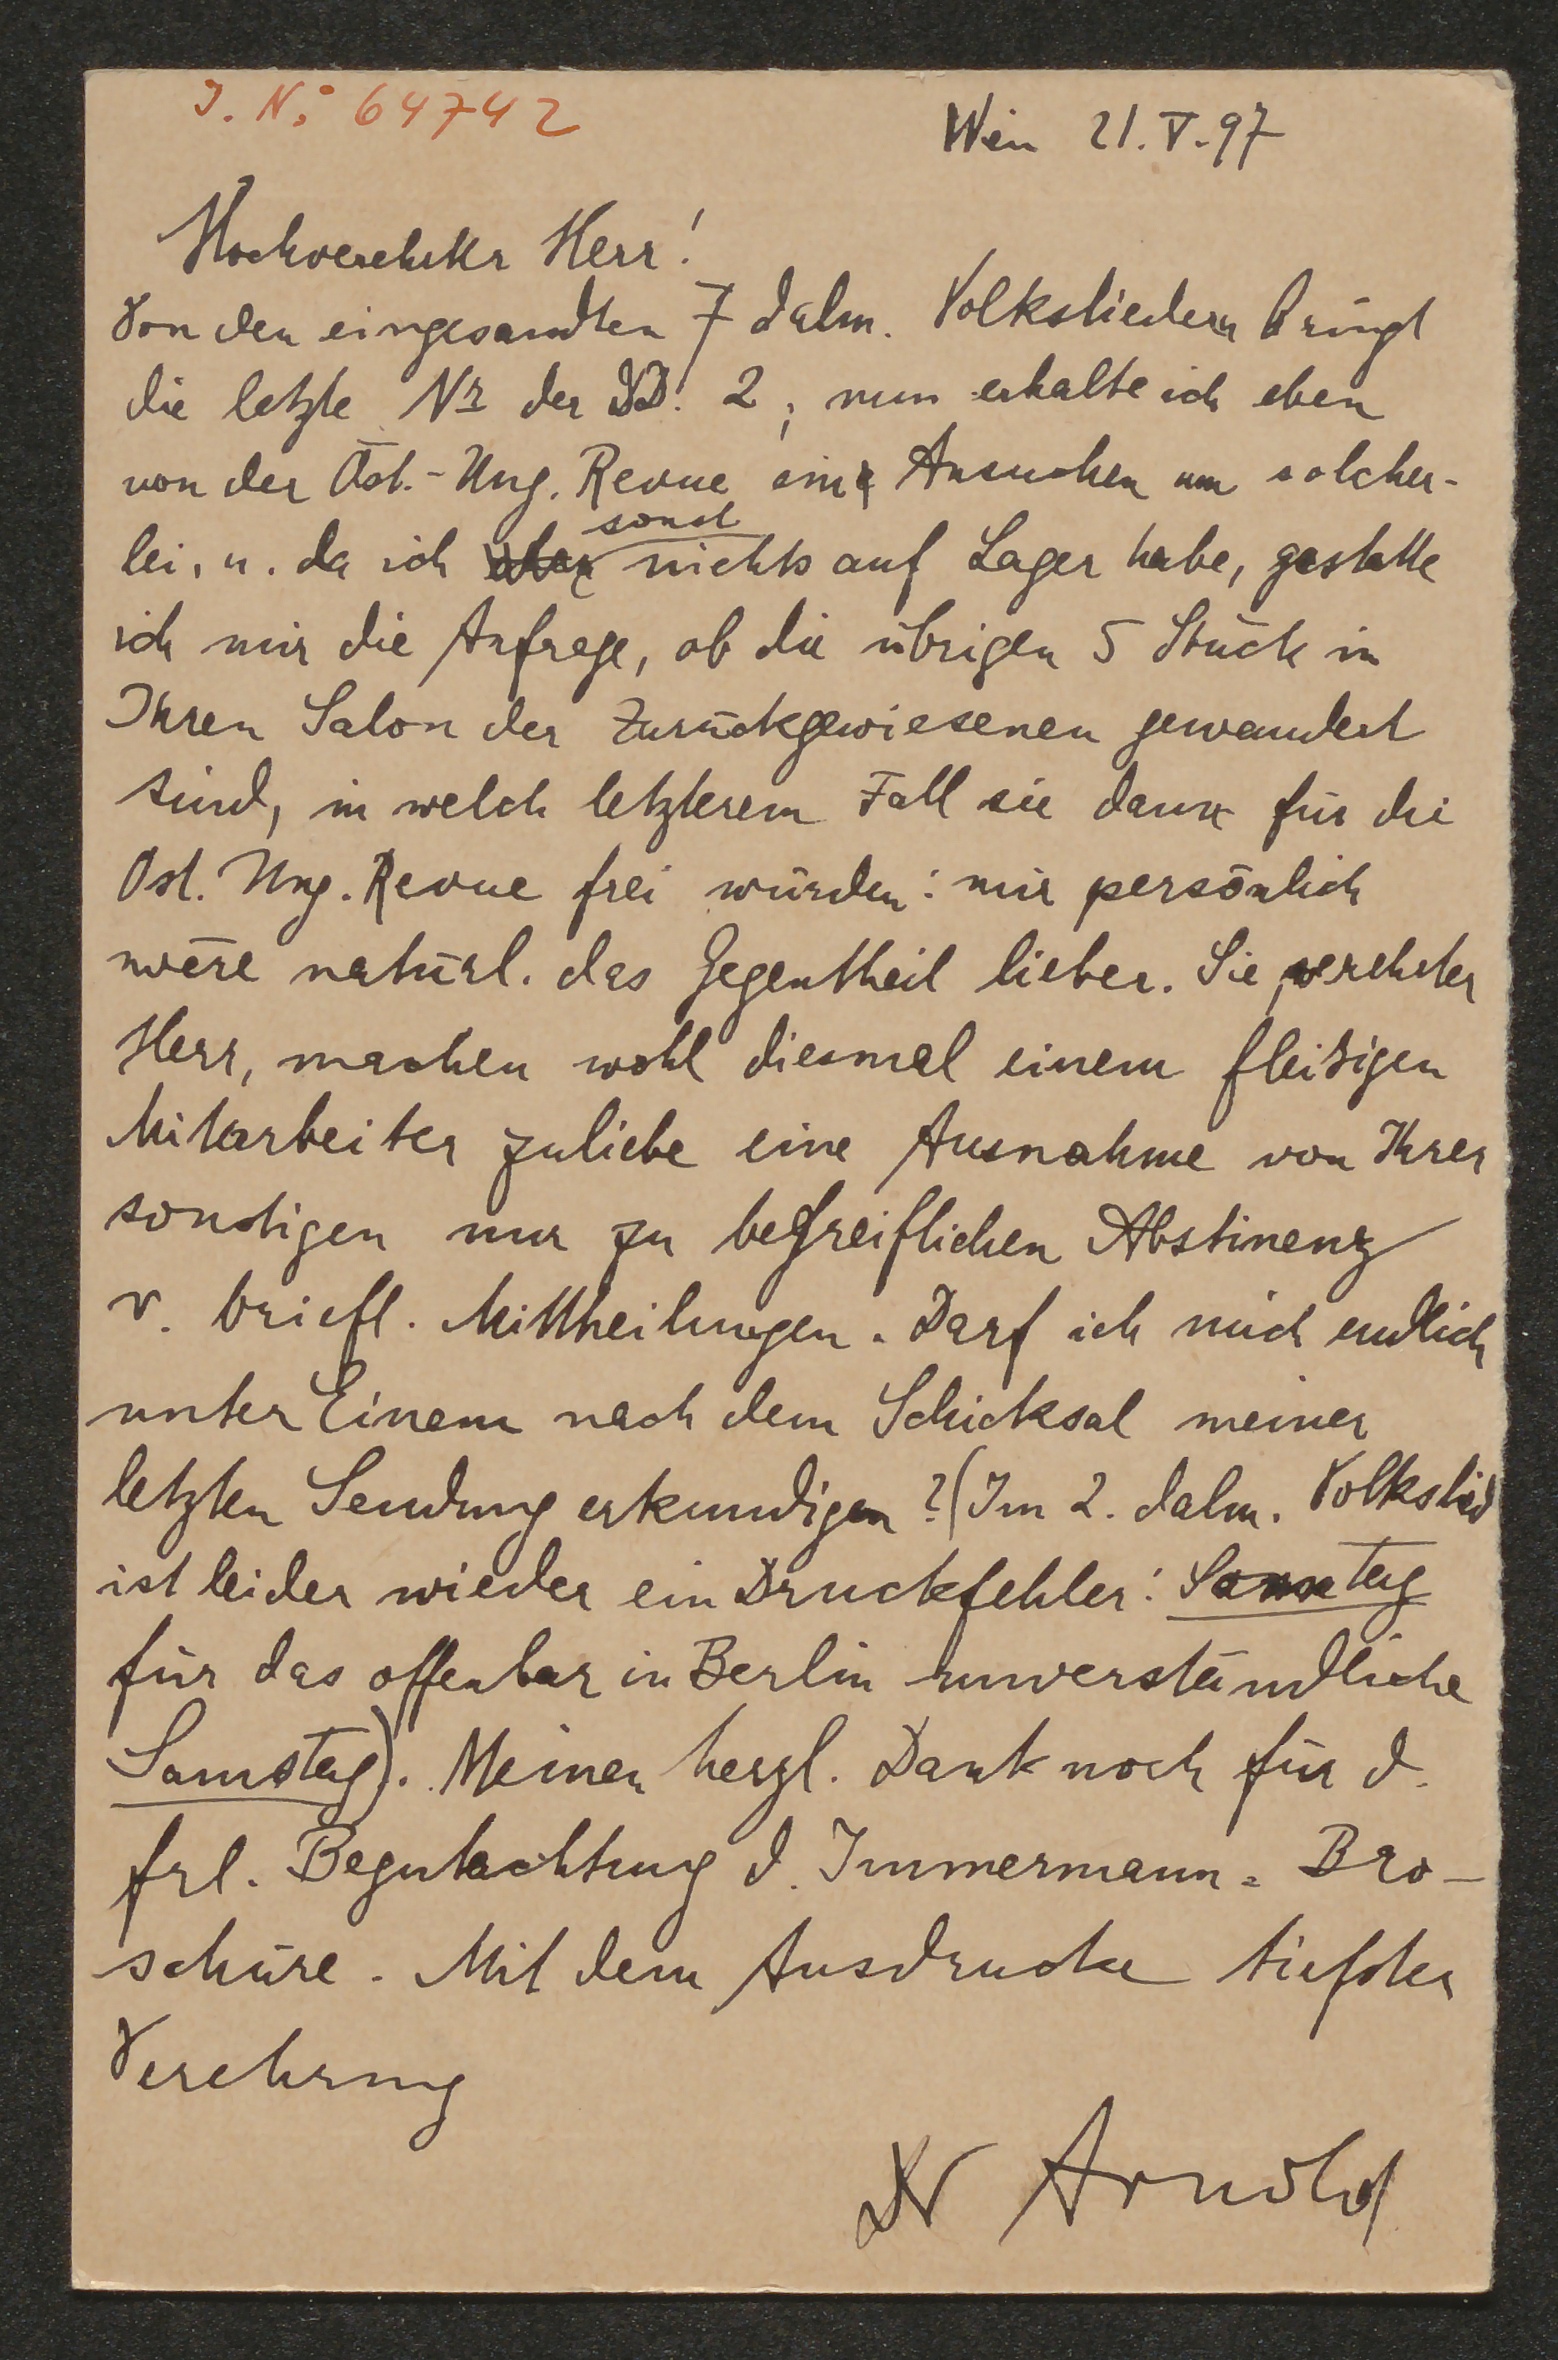 J. N. 64742
Wien 21. V. 97
Hochverehrter Herr!
Von den eingesandten 7 dalm. Volksliedern bringt
die letzte Nr der DD. 2, nun erhalte ich eben
von der Öst.-Ung. Revue ein Ansuchen um solcher-
lei, u. da ich sonst nichts auf Lager habe, gestatte
ich mir die Anfrage, ob die übrigen 5 Stück in
Ihren Salon der Zurückgewiesenen gewandert
sind, in welch letzterem Fall sie dann für die
Öst. Ung. Revue frei würden: mir persönlich
wäre natürl. das Gegentheil lieber. Sie, verehrter
Herr, machen wohl diesmal einem fleißigen
Mitarbeiter zuliebe eine Ausnahme von Ihrer
sonstigen nur zu begreiflichen Abstinenz
v. briefl. Mittheilungen. Darf ich mich endlich
unter Einem nach dem Schicksal meiner
letzten Sendung erkundigen? (Im 2. dalm. Volkslied
ist leider wieder ein Druckfehler: Sonntag
für das offenbar in Berlin unverständliche
Samstag). Meinen herzl. Dank noch für d.
frl. Begutachtung d. Immermann-Bro-
schüre. Mit dem Ausdrucke tiefster
Verehrung
Dr Arnold